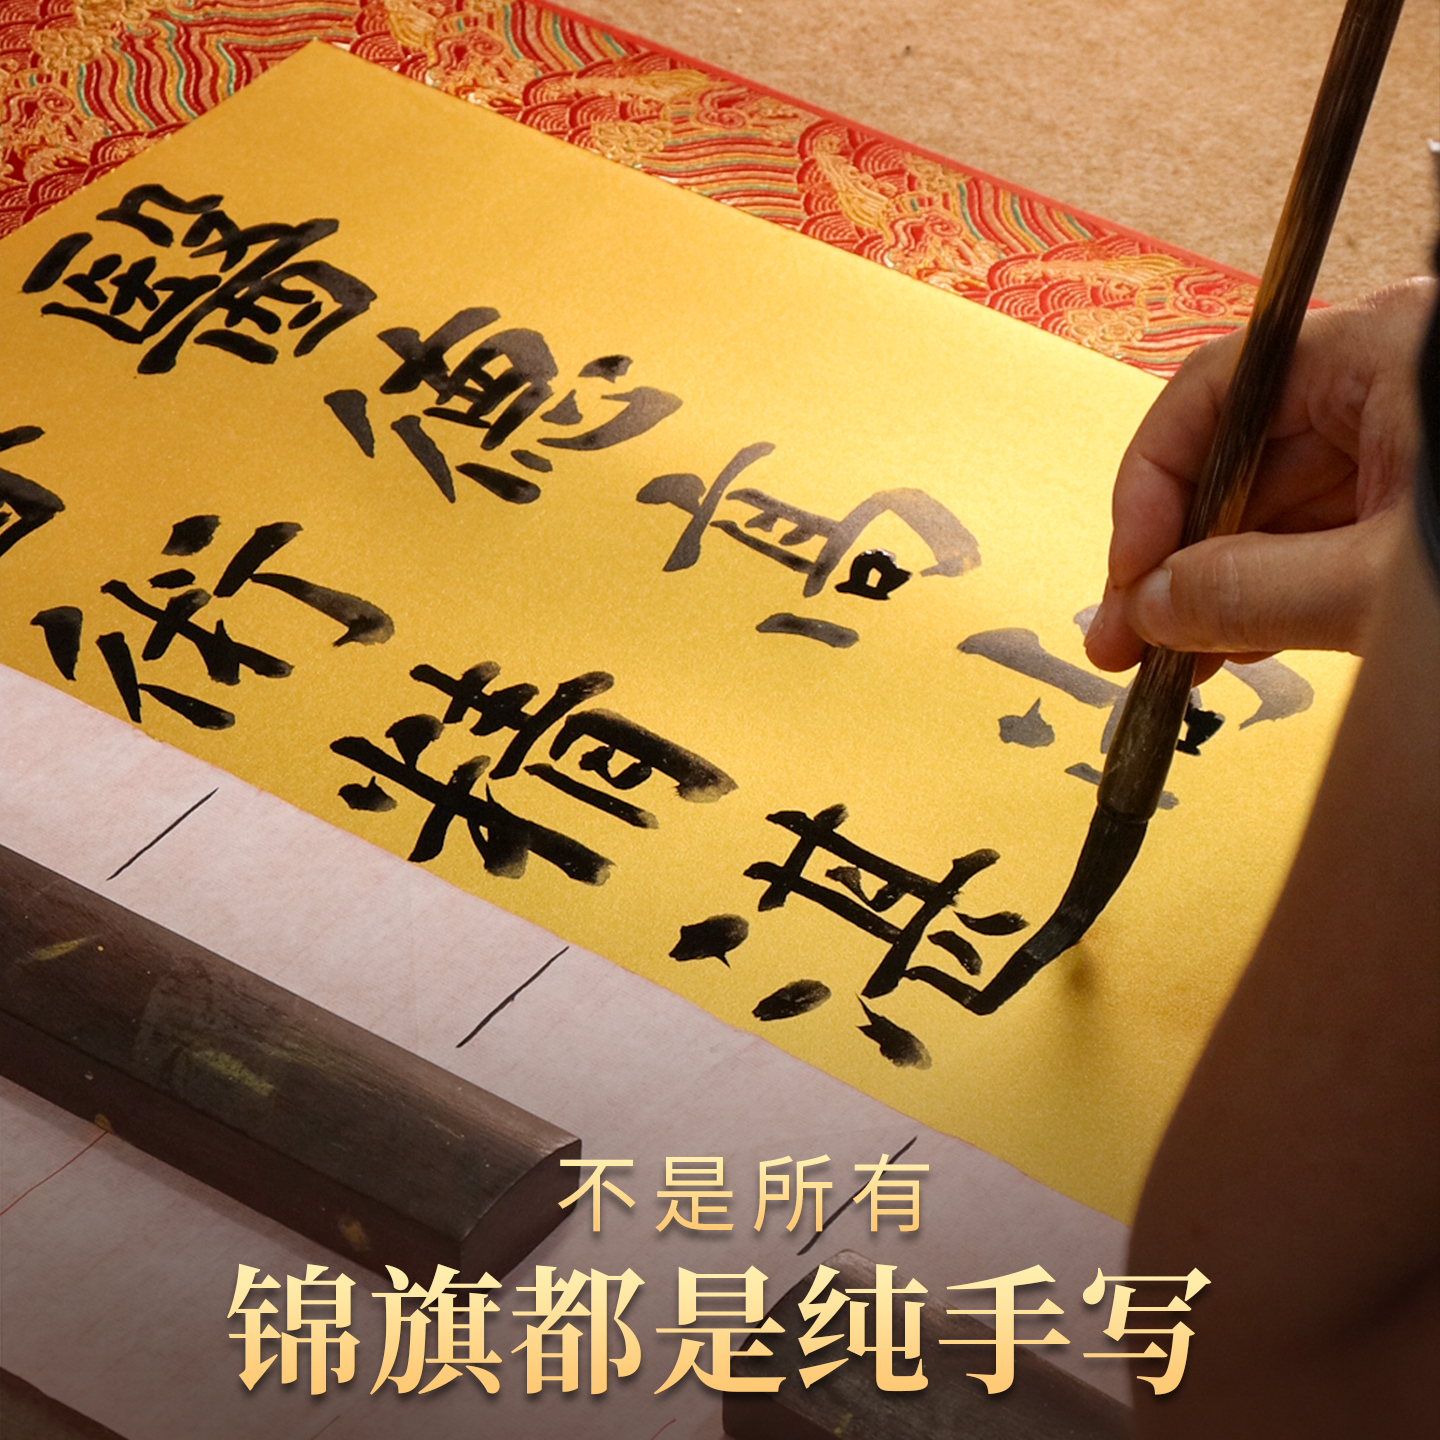 醫德高尚
術精湛
不是所有
锦旗都是纯手写